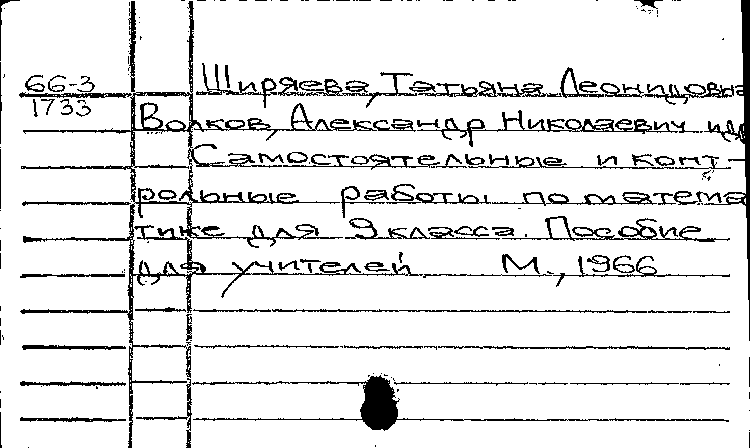 66-3
1733
Ширяева, Татьяна Леонидовна
Волков, Александр Николаевич и др
Самостоятельные и конт-
рольные работы по матема
тике для 9 класса. Пособие
для учителей. М., 1966